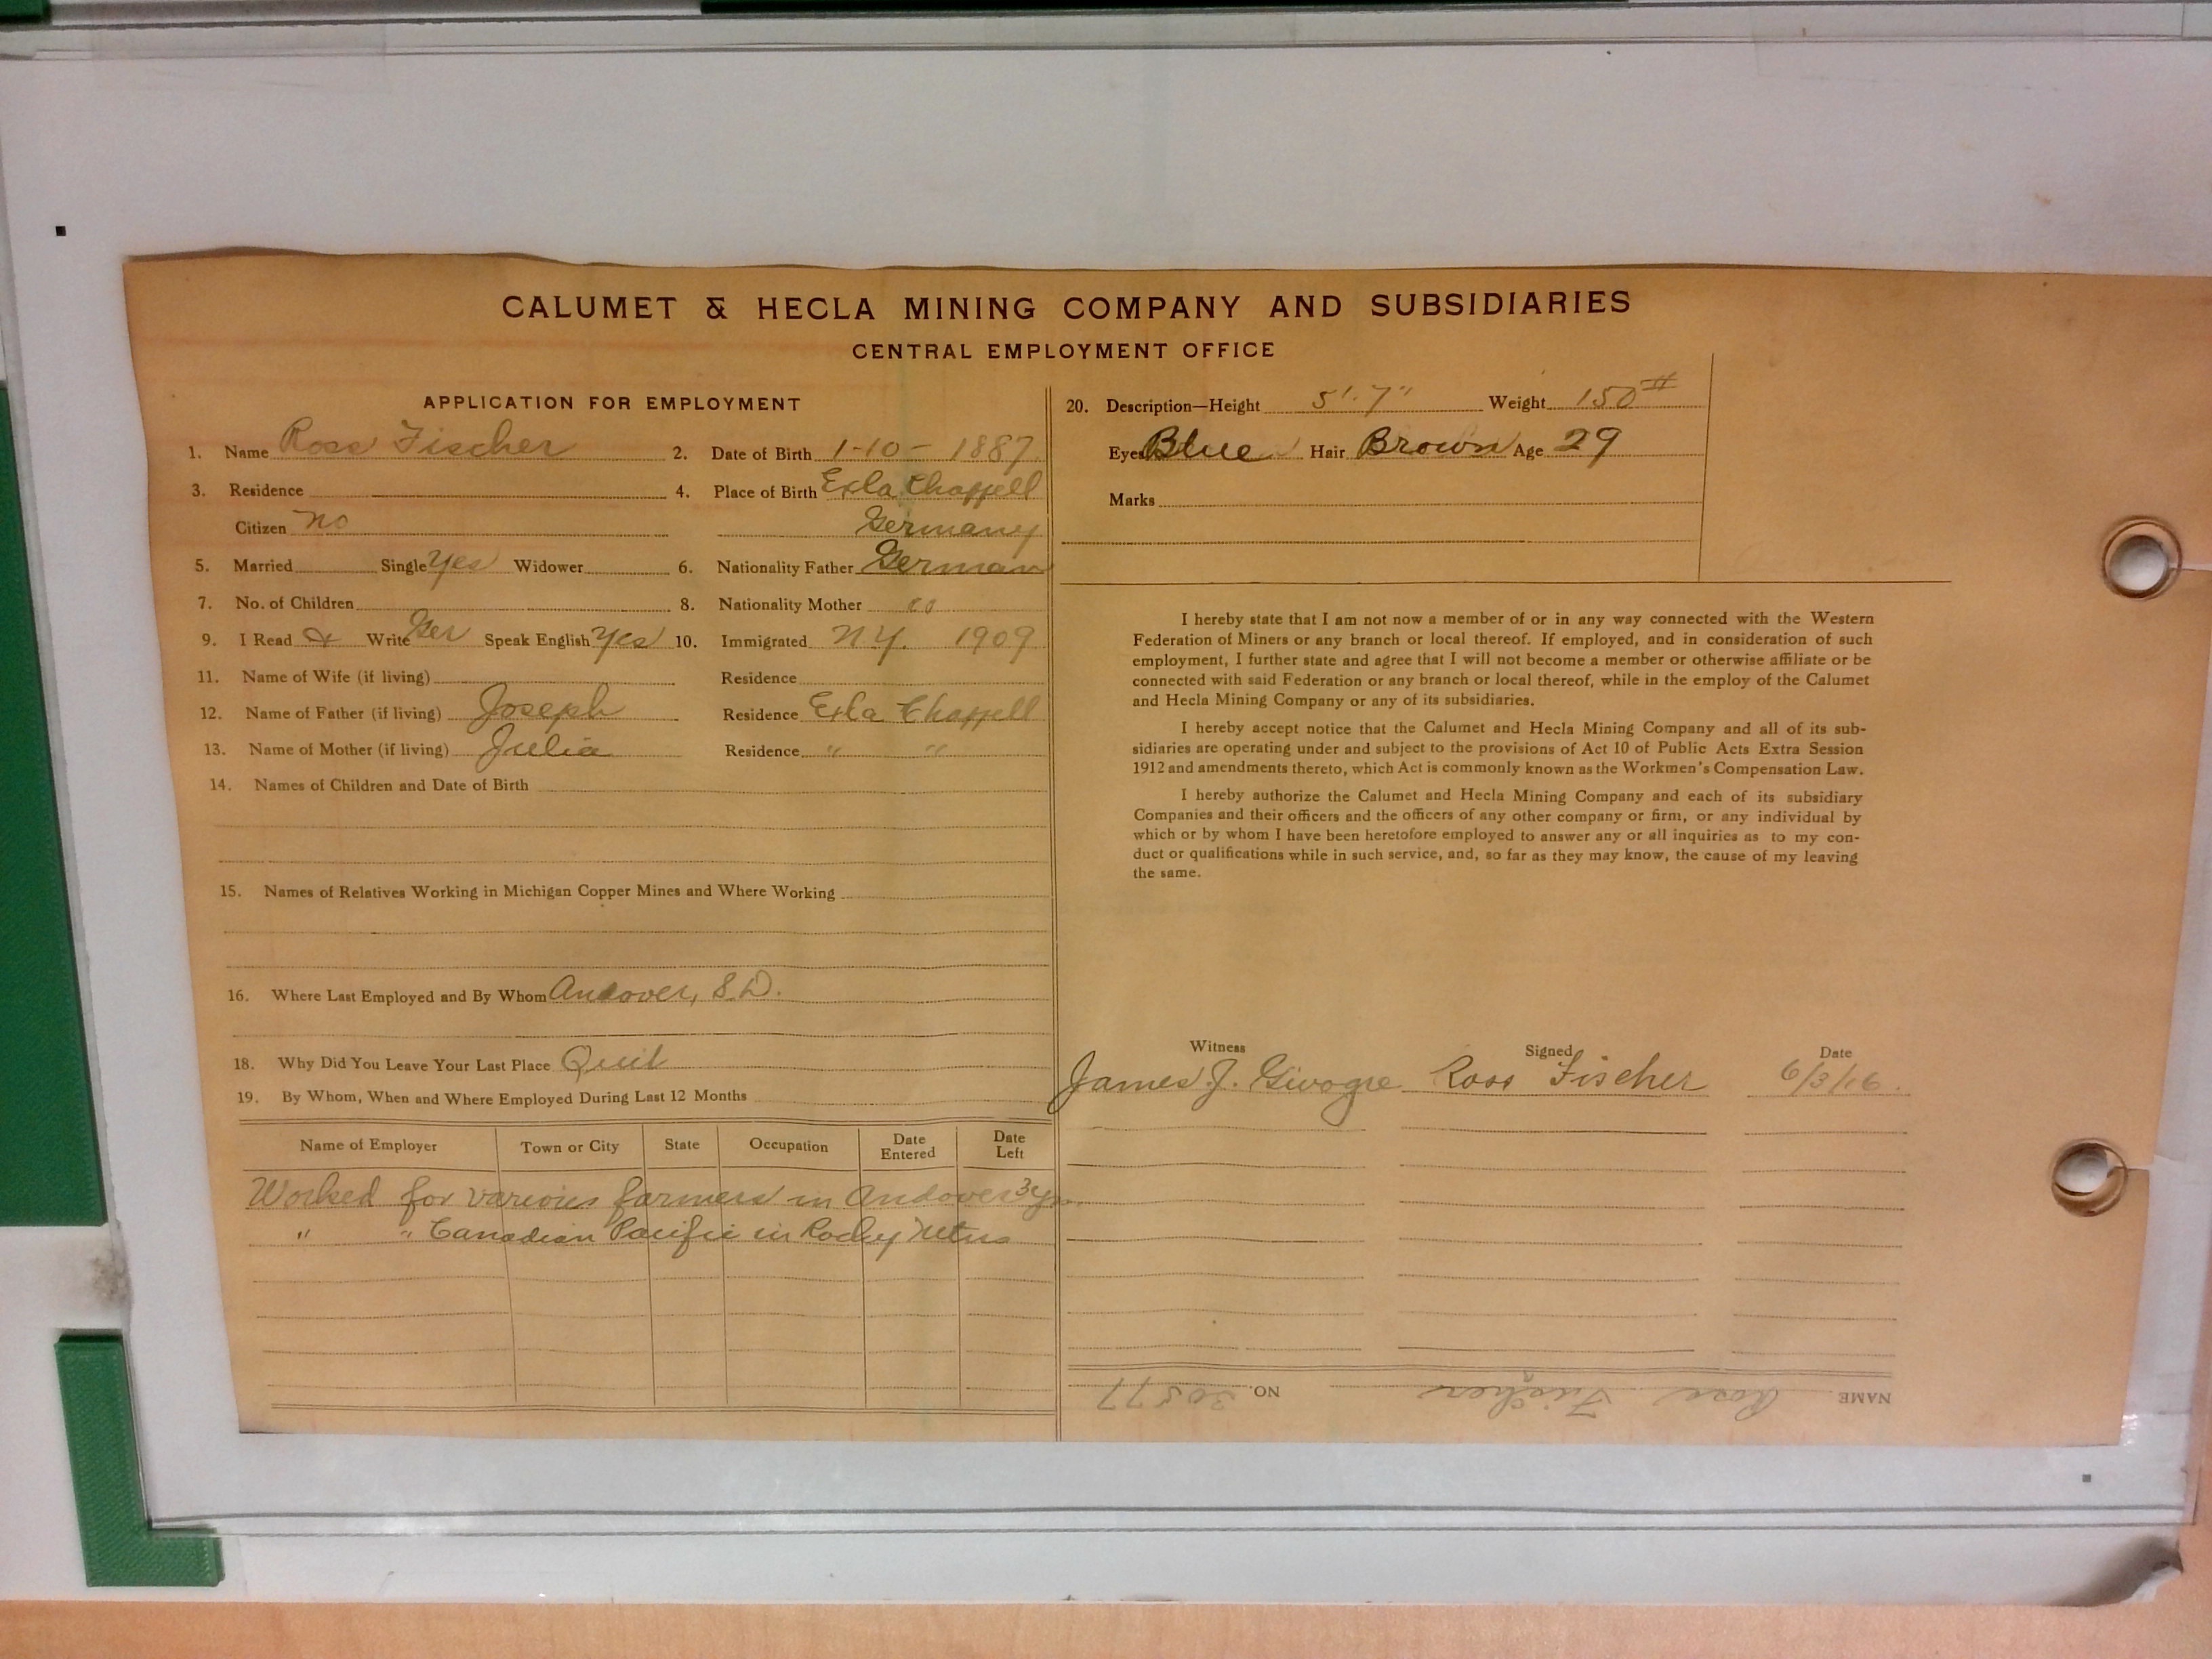 CALUMET & HECLA MINING COMPANY AND SUBSIDIARIES
CENTRAL EMPLOYMENT OFFICE
APPLICATION FOR EMPLOYMENT
1. Name Ross Fischer 2. Date of Birth 1-10-1887
3. Residence 4. Place of Birth Exla Chappell
Citizen no Germany
5. Married Single Yes Widower 6. Nationality Father German
7. No. of Children 8. Nationality Mother "
9. I Read & Write Ger Speak English Yes 10. Immigrated N.Y. 1909
11. Name of Wife (if living) Residence
12. Name of Father (if living) Joseph Residence Exla Chappell
13. Name of Mother (if living) Julia Residence " "
14. Names of Children and Date of Birth
15. Names of Relatives Working in Michigan Copper Mines and Where Working
16. Where Last Employed and By Whom Andover, S.D.
18. Why Did You Leave Your Last Place Quit
19. By Whom, When and Where Employed During Last 12 Months
Name of Employer Town or City State Occupation Date Entered Date Left
Worked for various farmers in Andover 3 yrs.
" " Canadian Pacific in Rocky Mtns
20. Description—Height 5'.7" Weight 150#
Eyes Blue Hair Brown Age 29
Marks
I hereby state that I am not now a member of or in any way connected with the Western
Federation of Miners or any branch or local thereof. If employed, and in consideration of such
employment, I further state and agree that I will not become a member or otherwise affiliate or be
connected with said Federation or any branch or local thereof, while in the employ of the Calumet
and Hecla Mining Company or any of its subsidiaries.
I hereby accept notice that the Calumet and Hecla Mining Company and all of its sub-
sidiaries are operating under and subject to the provisions of Act 10 of Public Acts Extra Session
1912 and amendments thereto, which Act is commonly known as the Workmen's Compensation Law.
I hereby authorize the Calumet and Hecla Mining Company and each of its subsidiary
Companies and their officers and the officers of any other company or firm, or any individual by
which or by whom I have been heretofore employed to answer any or all inquiries as to my con-
duct or qualifications while in such service, and, so far as they may know, the cause of my leaving
the same.
Witness Signed Date
James J. Givogre Ross Fischer 6/3/16.
NAME Ross Fischer NO. 30577